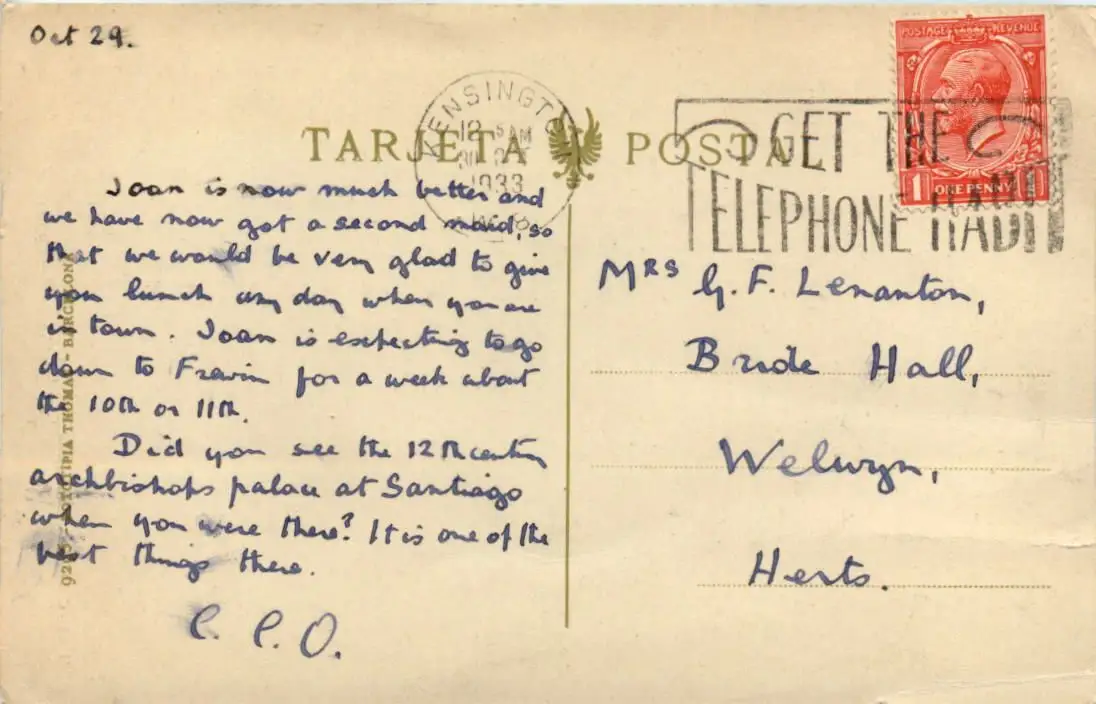 Oct 29.
TARJETA POSTAL
KENSINGTO
12 15 AM
1933
GET THE
TELEPHONE HABIT
POSTAGE REVENUE
1 ONE PENNY
Joan is now much better and
we have now got a second maid, so
that we would be very glad to give
you lunch any day when you are
in town. Joan is expecting to go
down to Frewin for a week about
the 10th or 11th.
Did you see the 12th century
archbishops palace at Santiago
when you were there? It is one of the
best things there.
C. C. O.
Mrs G. F. Lenanton,
Bride Hall,
Welwyn,
Herts.
THOMAS - BARCELONA